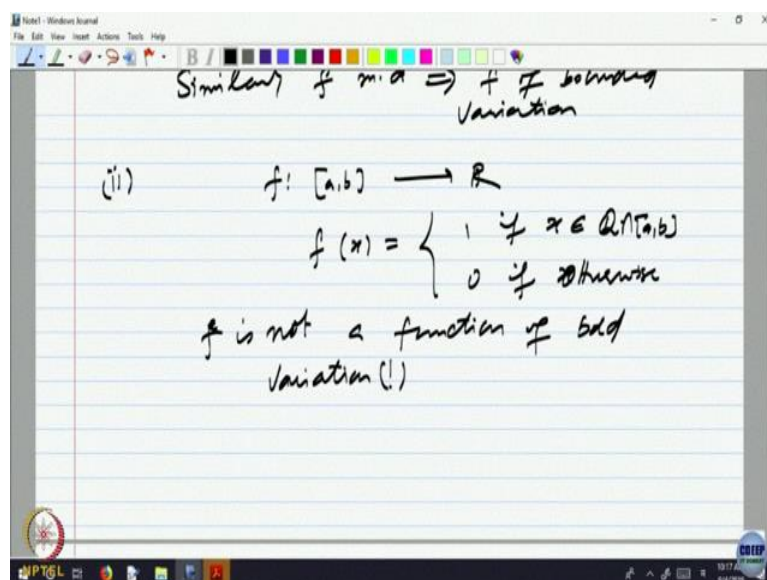 Note1 - Windows Journal
File Edit View Insert Actions Tools Help
B I
Similarly f m.d => f of bounded
variation
(ii) f: [a,b] → R
f(x) = { 1 if x ∈ Q∩[a,b]
0 if otherwise
f is not a function of bdd
variation (!)
NPTEL
CDEEP